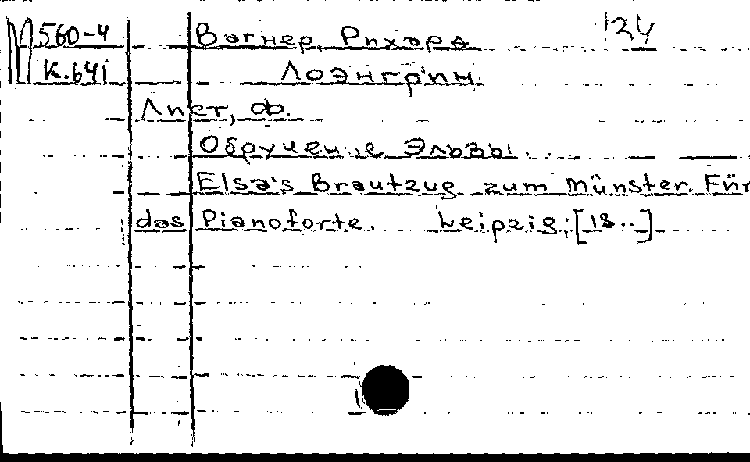 М 560-4 Вагнер, Рихард 124
К.641 Лоэнгрин.
Лист, Ф.
Обручение Эльзы.
Elsa's Brautzug zum Münster. Für
das Pianoforte. Leipzig, [18..]